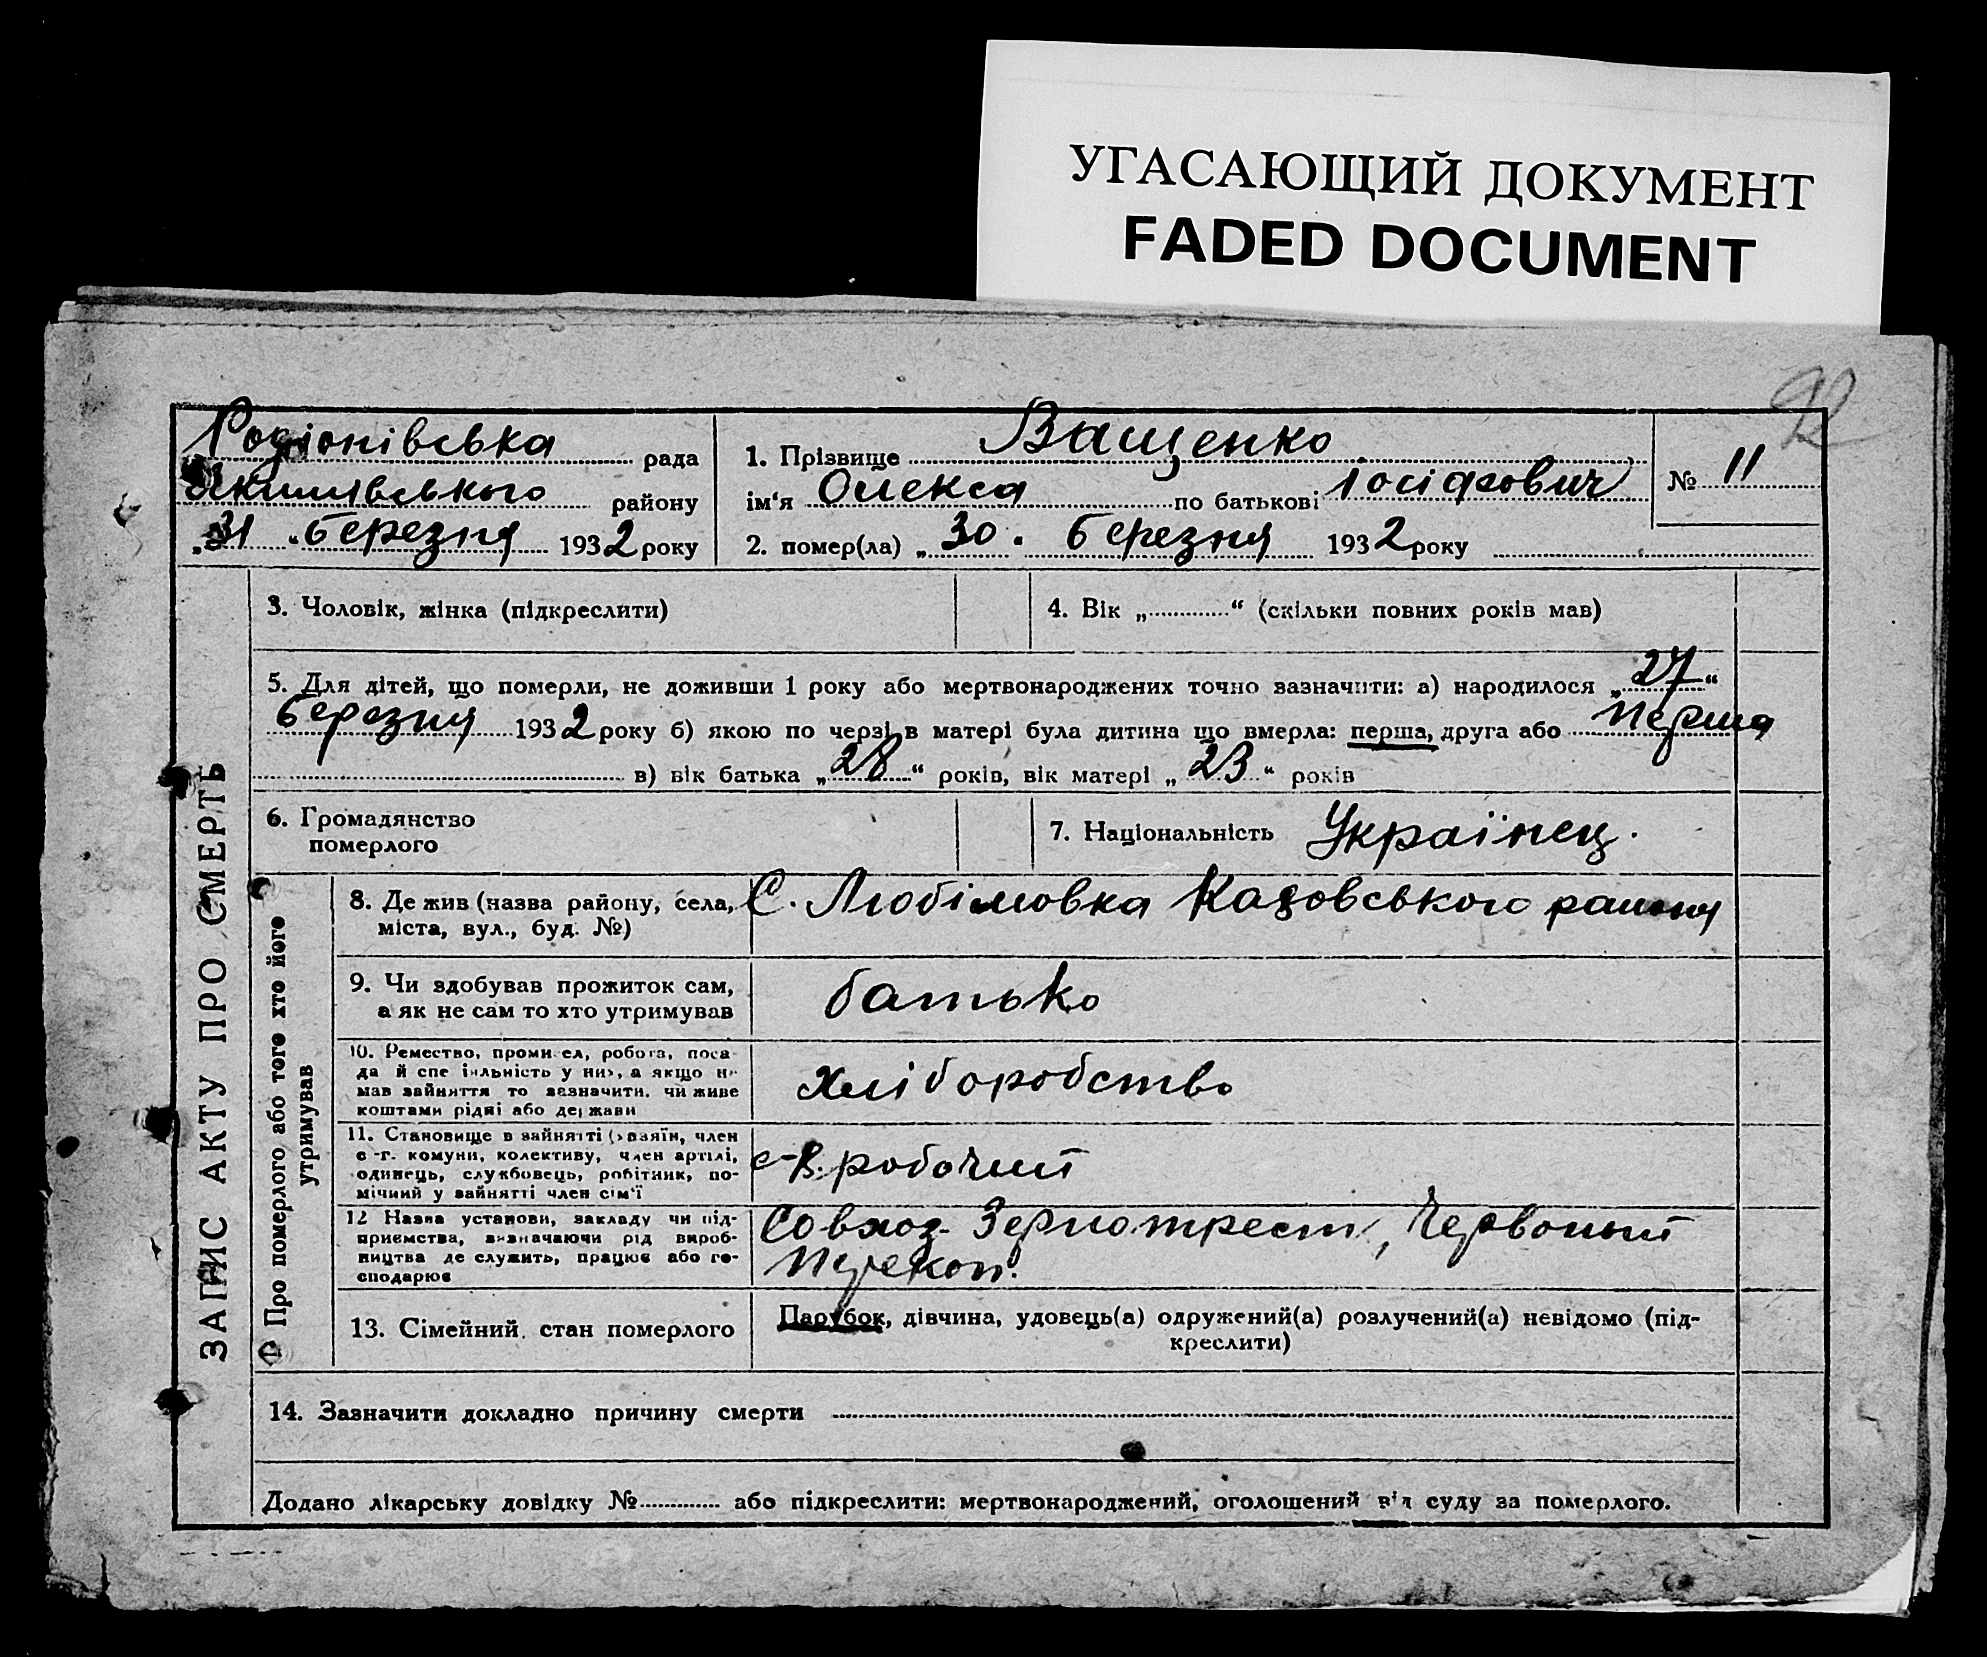 УГАСАЮЩИЙ ДОКУМЕНТ
FADED DOCUMENT
92
Родіонівська рада
Якимівського району
„31“ березня 1932 року
1. Прізвище Ващенко
ім‘я Олекса по батькові Іосіфович
№ 11
2. помер(ла) „30. березня 1932 року
ЗАПИС АКТУ ПРО СМЕРТЬ
3. Чоловік, жінка (підкреслити)
4. Вік „ “ (скільки повних років мав)
5. Для дітей, що померли, не доживши 1 року або мертвонароджених точно зазначити: а) народилося „27“
березня 1932 року б) якою по черзі в матері була дитина що вмерла: перша, друга або перша
в) вік батька „28“ років, вік матері „23“ років
6. Громадянство
померлого
7. Національність Українец.
Про померлого або того хто його
утримував
8. Де жив (назва району, села,
міста, вул., буд. №)
С. Любімовка Каховського района
9. Чи здобував прожиток сам,
а як не сам то хто утримував
батько
10. Ремество, промисел, робота, поса-
да й спеціяльність у них, а якщо не
мав зайняття то зазначити, чи живе
коштами рідні або держави
хліборобство
11. Становище в зайнятті (хазяїн, член
с.-г. комуни, колективу, член артілі,
одинець, службовець, робітник, по-
мічний у зайнятті член сім‘ї
робочий
12 Назва установи, закладу чи під-
приємства, визначаючи рід вироб-
ництва де служить, працює або го-
сподарює
Совхоз Зернотрест, Червоный
Перекоп.
13. Сімейний стан померлого
Парубок, дівчина, удовець(а) одружений(а) розлучений(а) невідомо (під-
креслити)
14. Зазначити докладно причину смерти
Додано лікарську довідку № або підкреслити: мертвонароджений, оголошений від суду за померлого.